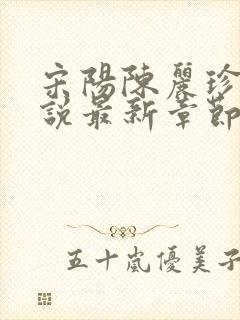 宋陽陳麗珍
說最新章節
五十嵐優美子